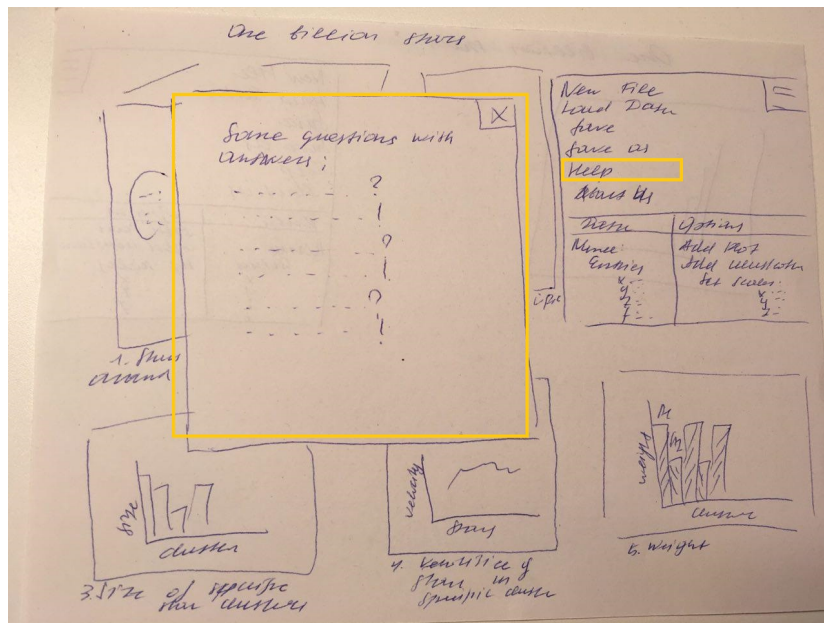 One billion stars
X
Some questions with
answers:
- - - - - - ?
- - - - - !
- - - - - - ?
- - - - - !
- - - - - ?
- - - - - !
New File
Load Data
Save
Save as
Help
About Us
Data
Options
Entries
Add Plot
Add
Set Scales:
x
y
z
x
y
z
1. Stars
around
size
cluster
3. Size of specific
star clusters
velocity
stars
4. Velocities of
stars in
specific cluster
weight
cluster
5. Weight